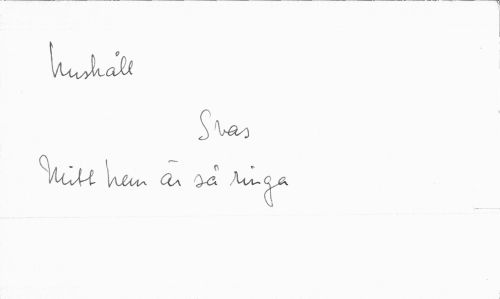 hushåll
Svas
Mitt hem är så ringa